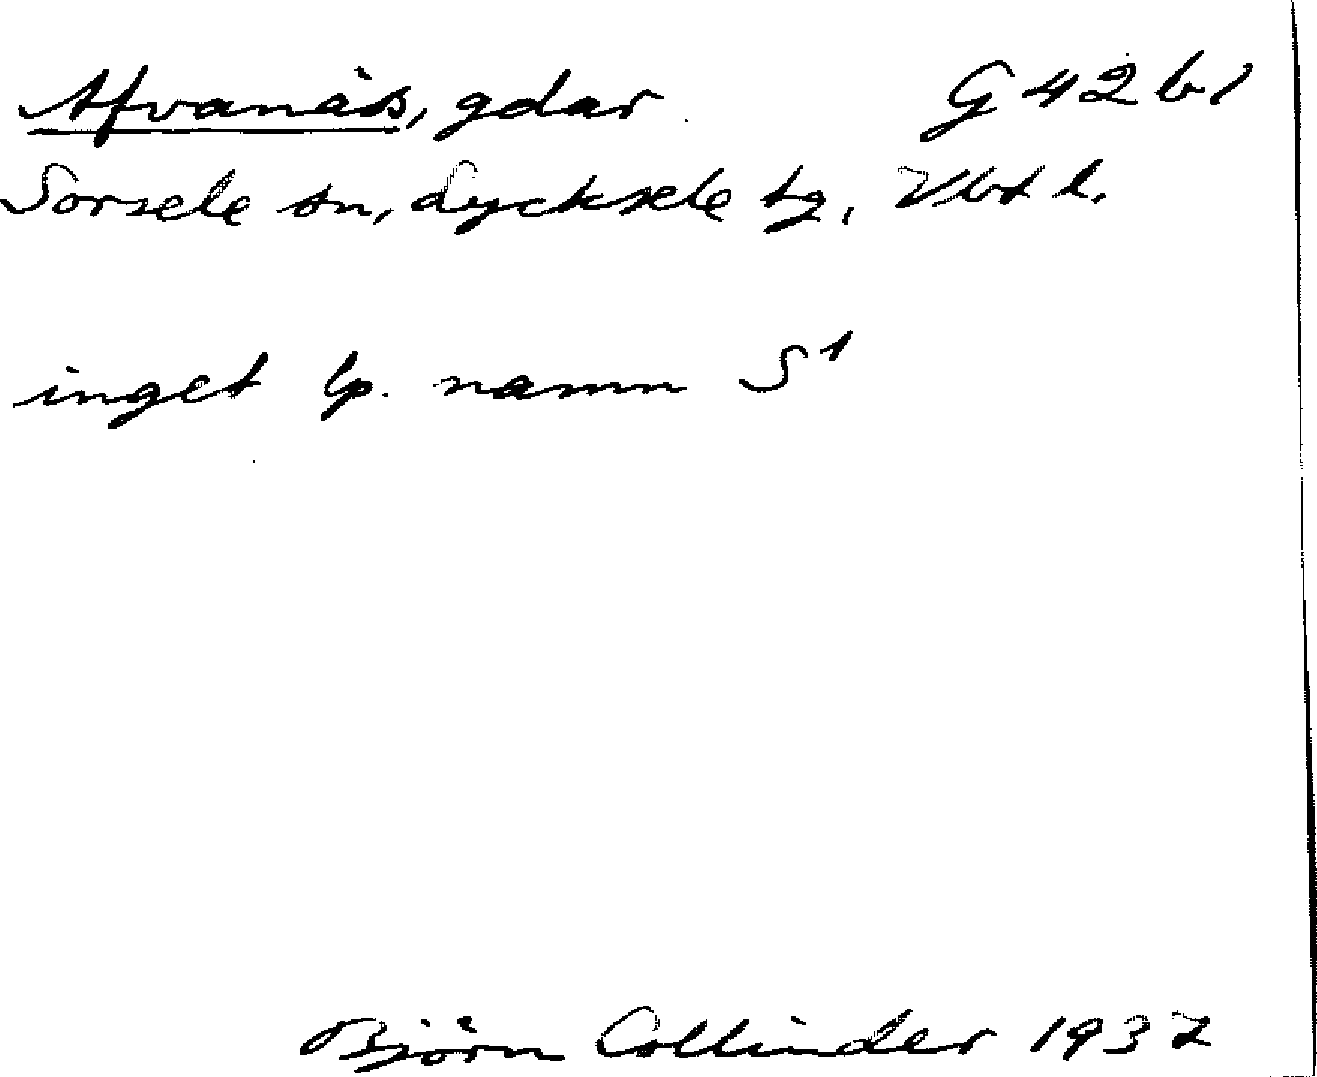 Afvanäs, gdar G 42 b1
Sorsele sn, Lycksele tg, Vbt l.
inget lp. namn S¹
Björn Collinder 1937